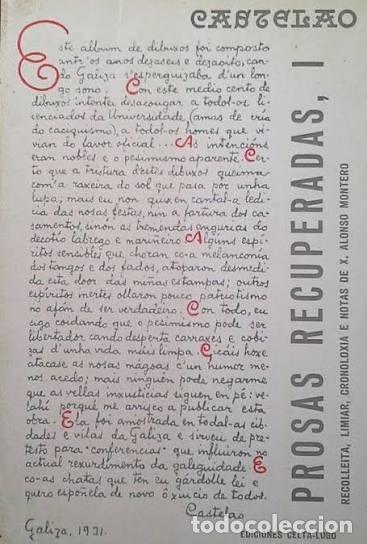 CASTELAO
Este album de dibuxos foi composto
antr'os anos dazaseis e dazaoito, can-
do Galiza s'esperguizaba d'un lon-
go sono. Con este medio cento de
dibuxos intentei desacougar a todol-os li-
cenciados da Universidade (amas de cría
do caciquismo), a todol-os homes que vi-
vían do favor oficial... As intencións
eran nobles e o pesimismo aparente. Cer-
to que a tristura d'estes dibuxos queima-
com'a raxeira do sol que pasa por unha
lupa; mais eu non quix'en cantal-a ledi-
cia das nosas festas, nin a fartura dos ca-
samentos, sinon as tremendas angurias do
decotío labrego e mariñeiro. Algúns espí-
ritos sensibles que choran co-a melanconía
dos tangos e dos fados, atoparon desmedi-
da esta door das miñas estampas; outros
espíritos inertes ollaron pouco patriotismo
no afán de ser verdadeiro. Con todo, eu
sigo coidando que o pesimismo pode ser
libertador cando desperta carraxes e cobi-
zas d'unha vida mais limpa. Quizáis hoxe
atacase as nosas mágoas c'un humor me-
nos acedo; mais ninguén pode negarme
que as vellas inxusticias siguen en pé: ve-
lahí porqué me arrisco a publicar esta
obra. Ela foi amostrada en todal-as ci-
dades e vilas da Galiza e sirveu de pre-
testo para "conferencias" que influiron no
actual rexurdimento da galeguidade. E
co-as chatas que ten eu gárdolle lei e
quero espoñela de novo ô xuicio de todos.
Castelao
Galiza, 1931.
PROSAS RECUPERADAS, I
RECOLLEITA, LIMIAR, CRONOLOXIA E NOTAS DE X. ALONSO MONTERO
EDICIONES CELTA-LUGO
todocoleccion